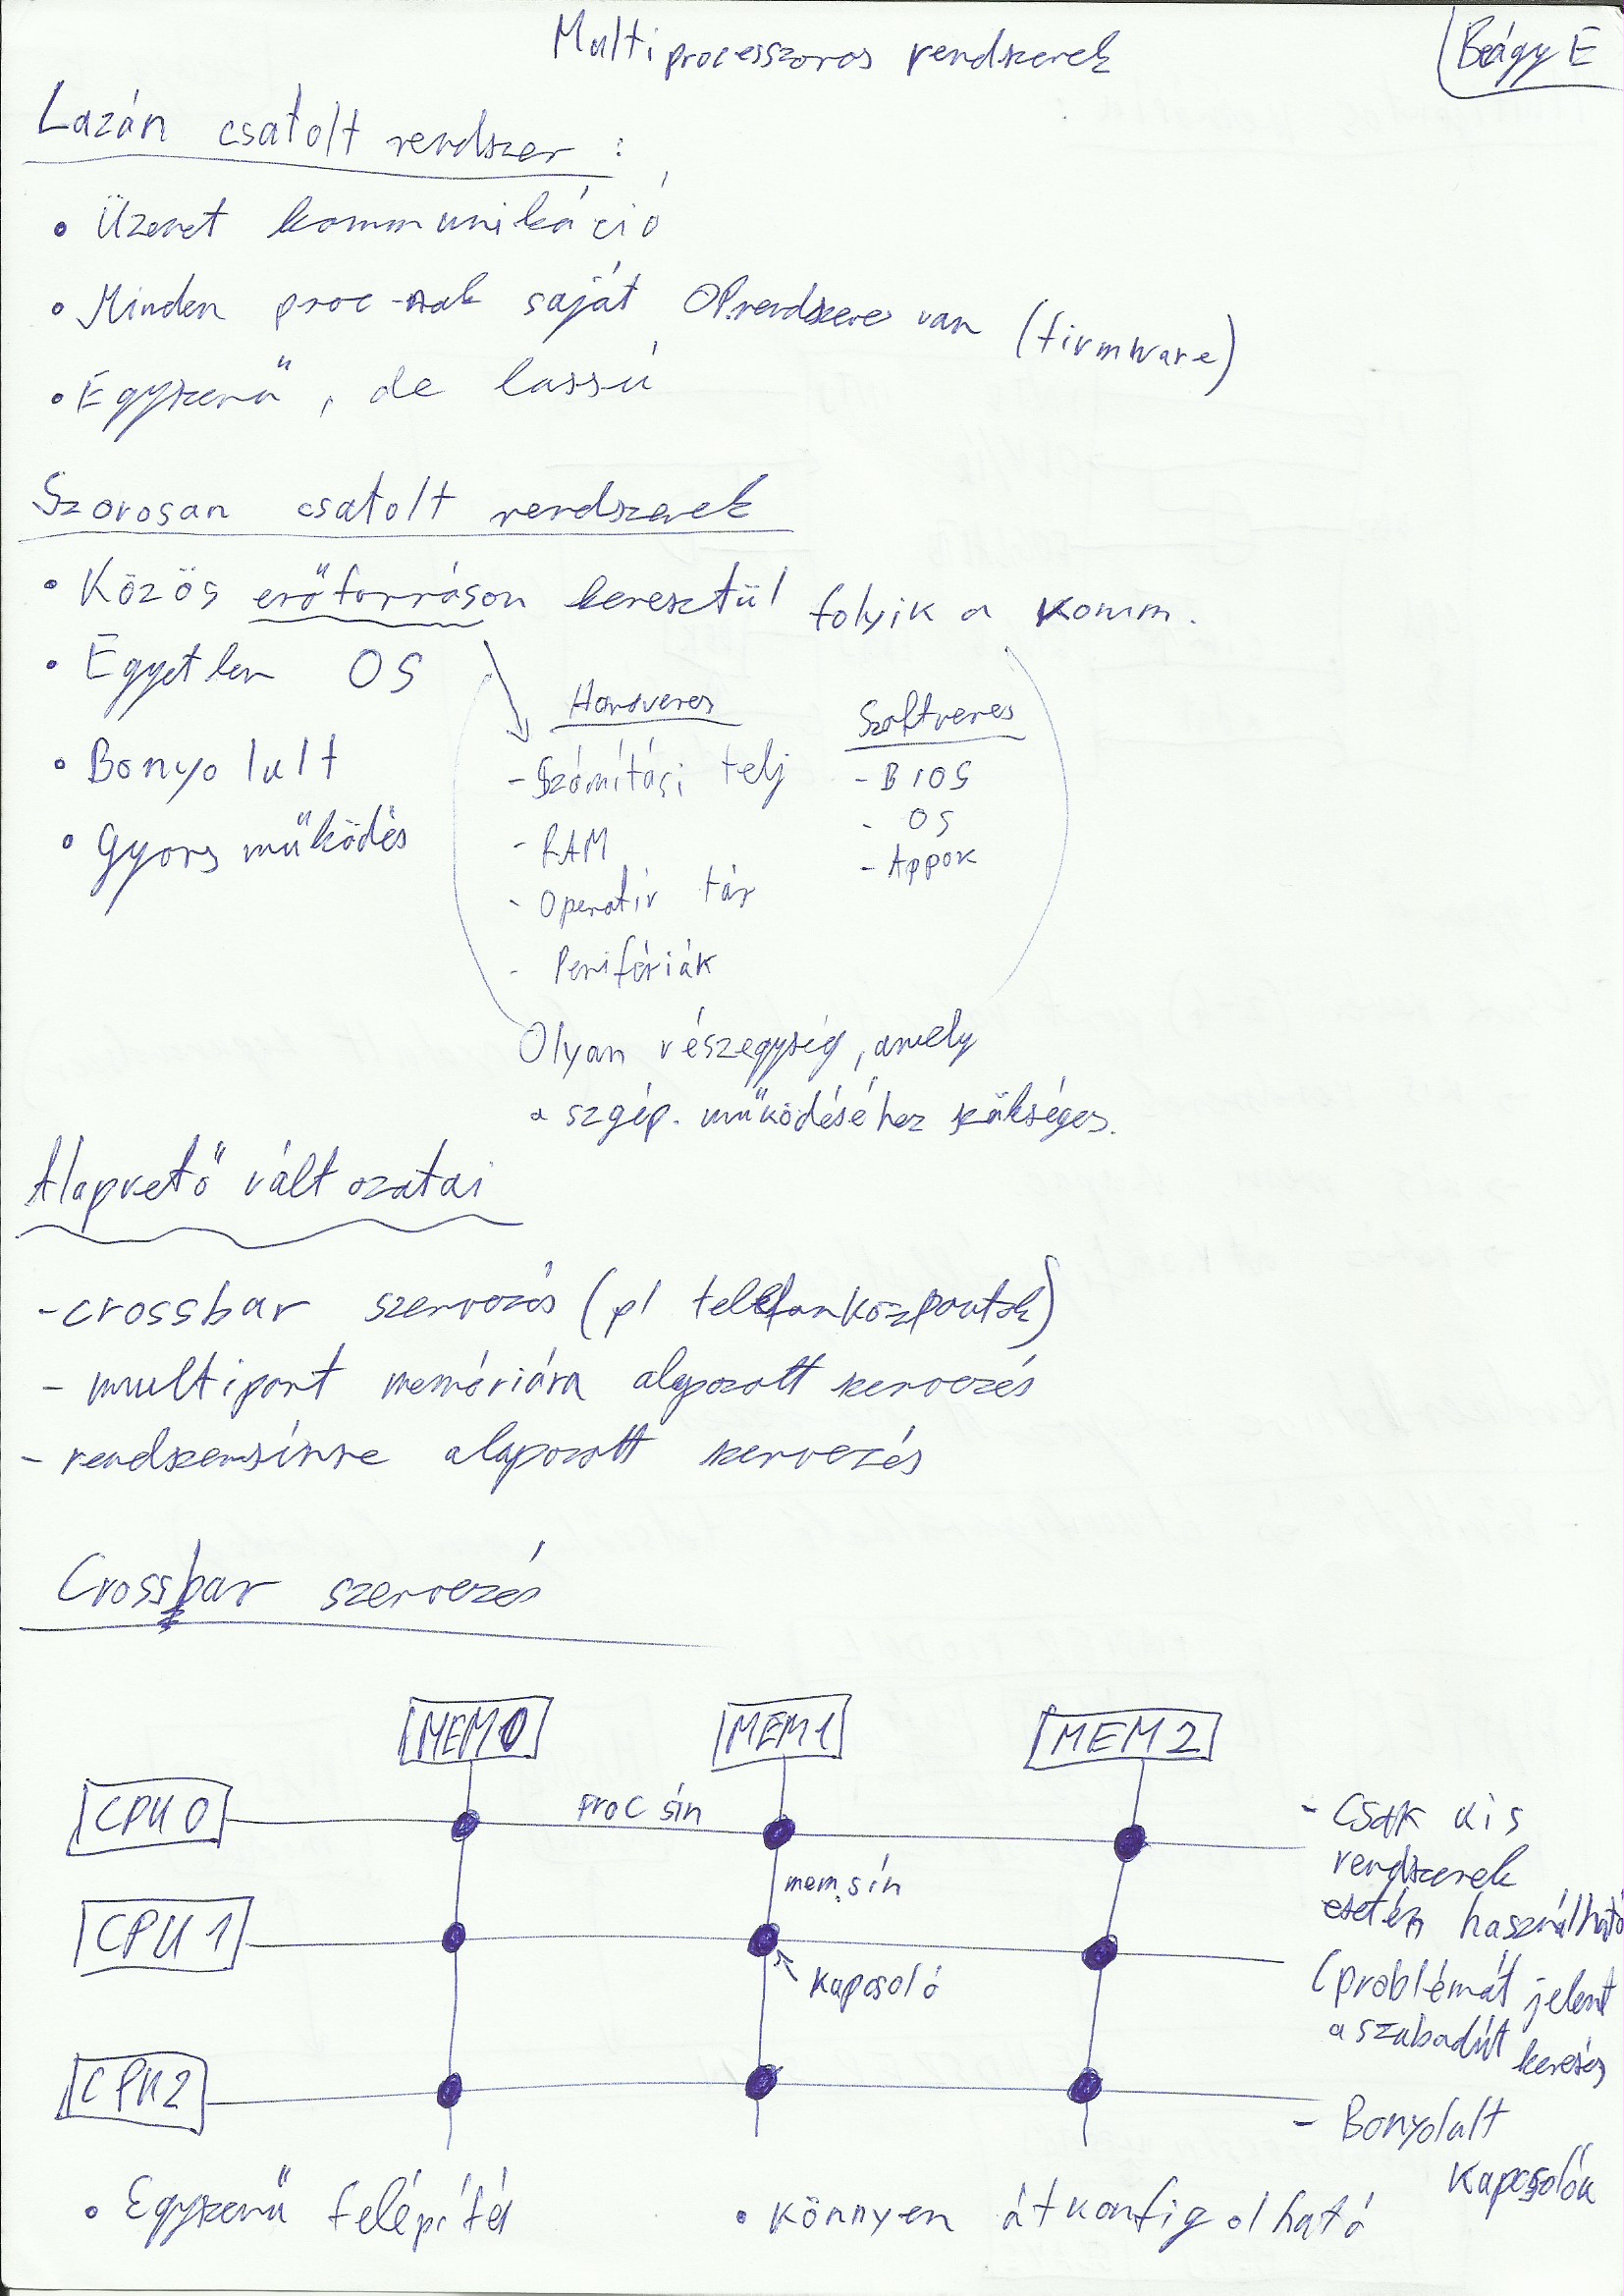 Multiprocesszoros rendszerek
Beágy E
Lazán csatolt rendszer :
• Üzenet kommunikáció
• Minden proc-nak saját OPrendszere van (firmware)
• Egyszerű, de lassú
Szorosan csatolt rendszerek
• Közös erőforráson keresztül folyik a komm.
• Egyetlen OS
• Bonyolult
• Gyors működés
Hardveres
- Számítási telj
- RAM
- Operatív tár
- Perifériák
Szoftveres
- BIOS
- OS
- Appok
Olyan részegység, amely
a szgép. működéséhez szükséges.
Alapvető változatai
- crossbar szervezés (pl telefonközpontok)
- multiport memóriára alapozott szervezés
- rendszersínre alapozott szervezés
Crossbar szervezés
MEM0 MEM1 MEM2
CPU 0
proc sín
mem.sín
CPU 1
kapcsoló
CPU2
- Csak kis
rendszerek
esetén használható
(problémát jelent
a szabadút keresés
- Bonyolult
kapcsolók
• Egyszerű felépítés
• könnyen átkonfigolható